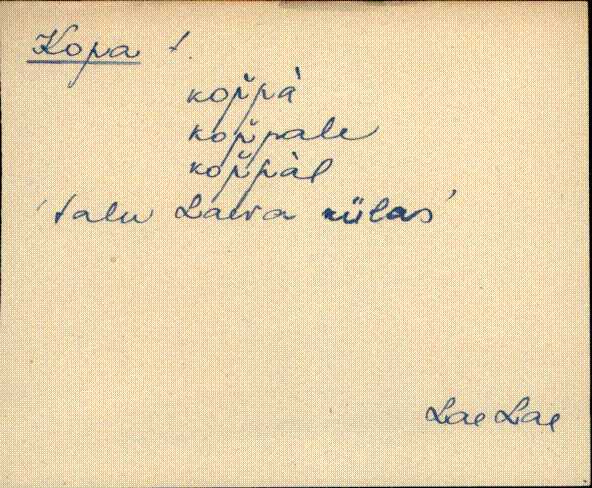 Kopa t.
kop̆p̆à
kop̆p̆ale
kop̆p̆àl
'talu Laeva külas'
Lae Lae